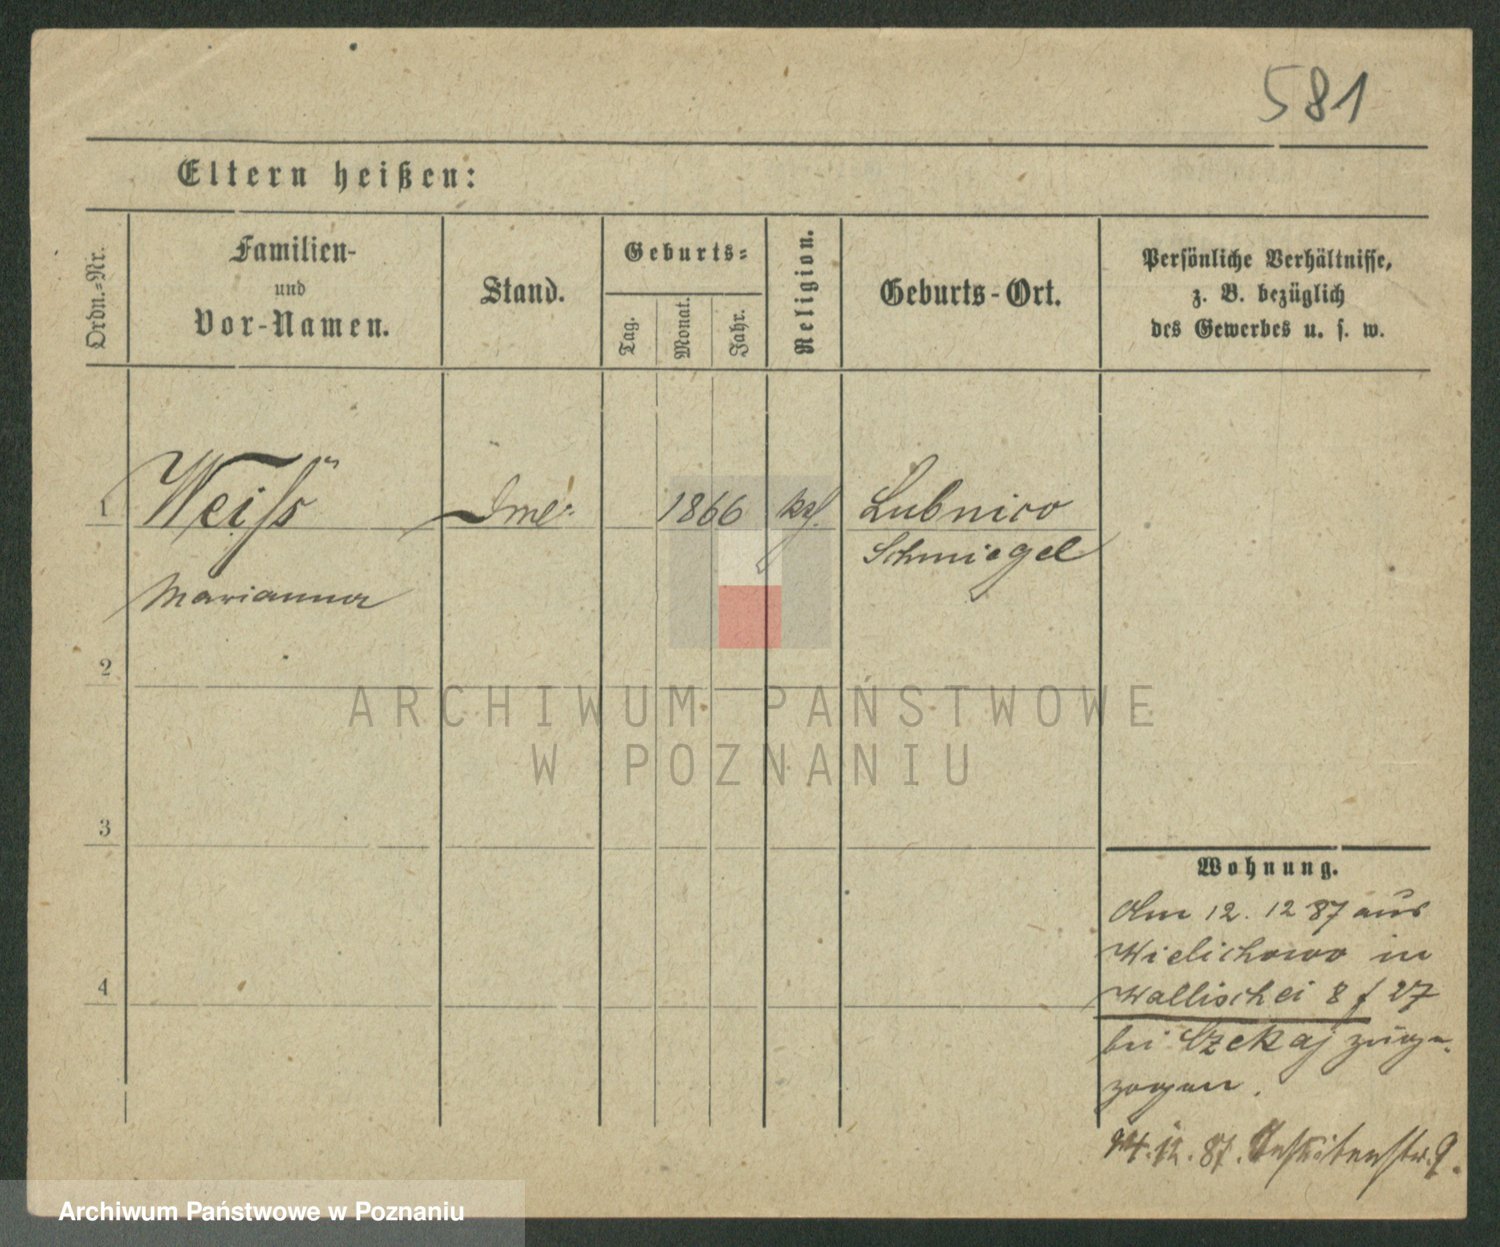 581
Eltern heißen:
Ordn.-Nr.
Familien-
und
Vor-Namen.
Stand.
Geburts-
Tag.
Monat.
Jahr.
Religion.
Geburts-Ort.
Persönliche Verhältnisse,
z. B. bezüglich
des Gewerbes u. s. w.
1
Weiss
1866
Lubnico
Schmiegel
Marianna
2
ARCHIWUM PAŃSTWOWE
W POZNANIU
3
Wohnung.
Am 12. 12 87 aus
Wielichowo in
4
Wallischei 8 f 27
bei Czekaj zuge-
zogen.
24.12.87. 9.
Archiwum Państwowe w Poznaniu